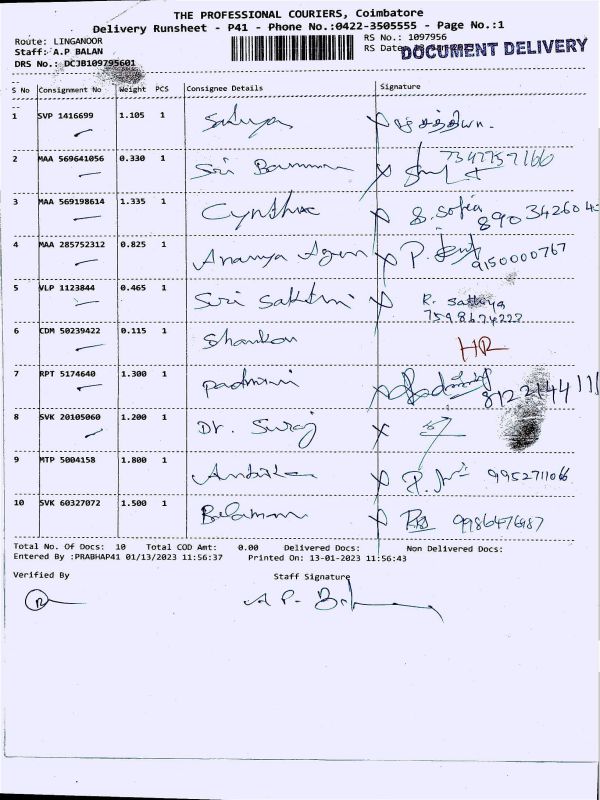 THE PROFESSIONAL COURIERS, Coimbatore
Delivery Runsheet - P41 - Phone No.:0422-3505555 - Page No.:1
Route: LINGANOOR RS No.: 1097956
Staff: A.P BALAN RS Date
DOCUMENT DELIVERY
DRS No.: DCJB109795601
S No Consignment No Weight PCS Consignee Details Signature
1 SVP 1416699 1.105 1 Sathya
2 MAA 569641056 0.330 1 Sri
3 MAA 569198614 1.335 1 Cynthia S. Sofia
4 MAA 285752312 0.825 1 Ananya 9150000767
5 VLP 1123844 0.465 1 Siri Sakthi R. Sathya
6 CDM 50239422 0.115 1 Shankar HR
7 RPT 5174640 1.300 1 Padmini
8 SVK 20105060 1.200 1 Dr. Suraj
9 MTP 5004158 1.800 1 9952711066
10 SVK 60327072 1.500 1
Total No. Of Docs: 10 Total COD Amt: 0.00 Delivered Docs: Non Delivered Docs:
Entered By :PRABHAP41 01/13/2023 11:56:37 Printed On: 13-01-2023 11:56:43
Verified By Staff Signature
A P.